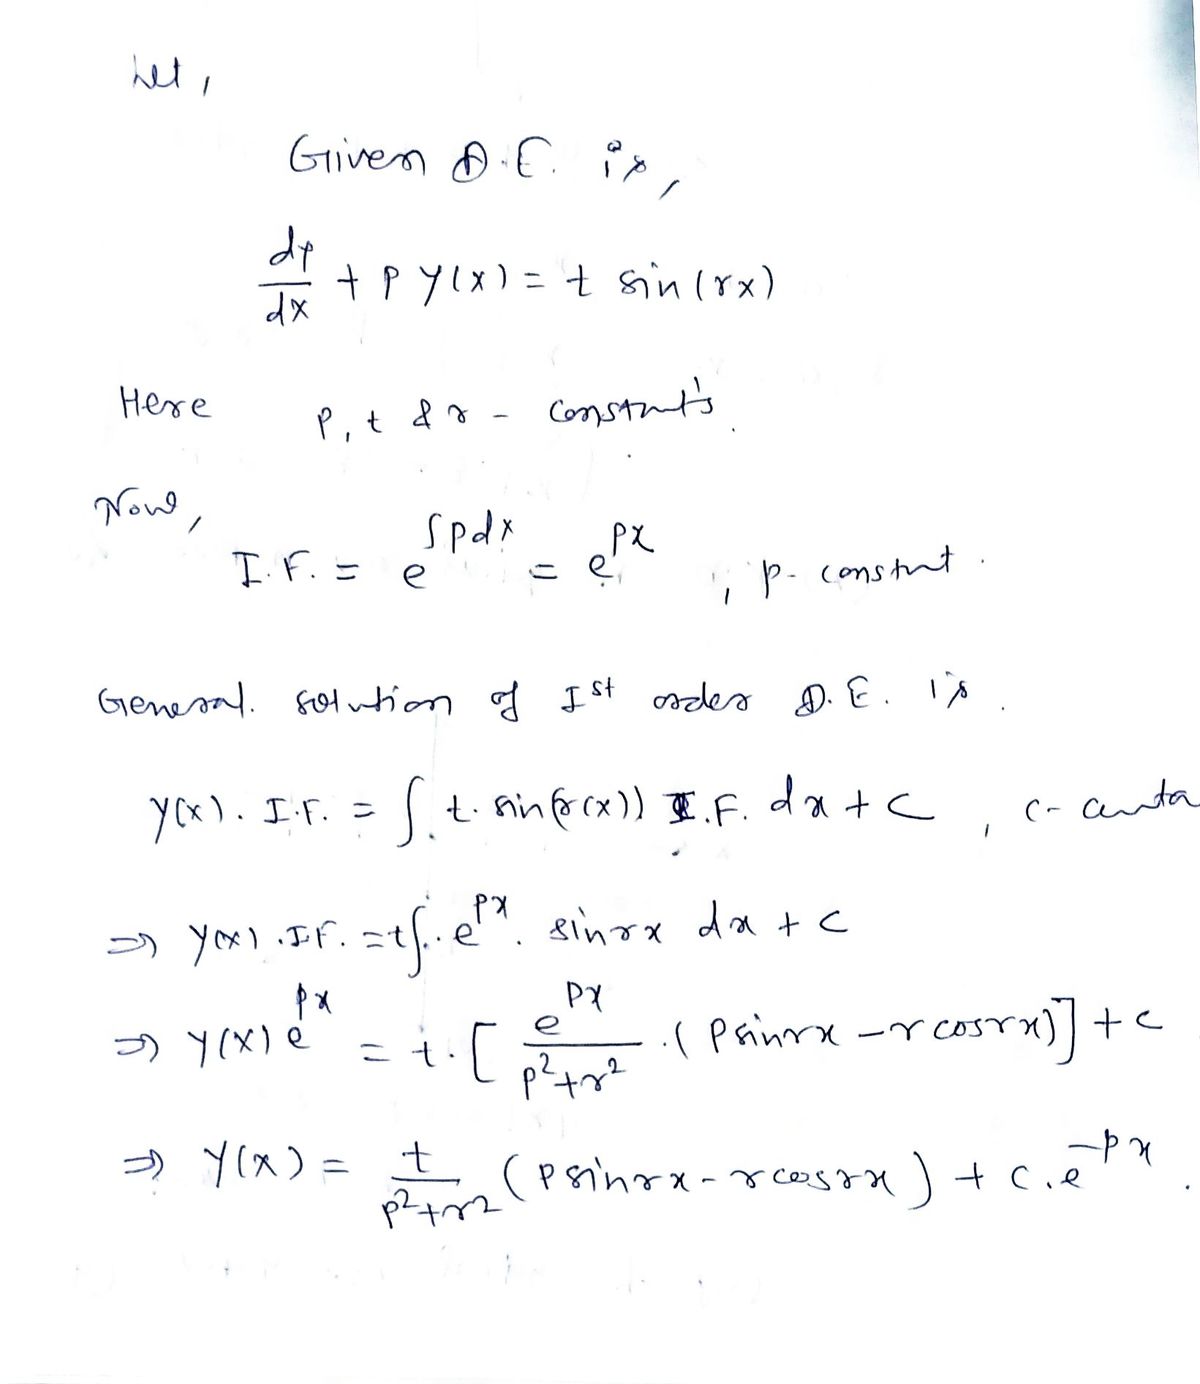 Let,
Given D.E. is,
dy/dx + p y(x) = t sin(rx)
Here p, t & r - constant's.
Now,
I.F. = e^∫pdx = e^px , p - constnt.
General. solution of Ist order D.E. is.
y(x). I.F. = ∫. t. sin(r(x)) I.F. dx + c , c-
⇒ y(x). I.F. = t∫.. e^px. sinrx dx + c
⇒ y(x) e^px = t. [ e^px/(p²+r²) . (p sinrx - r cosrx)] + c
⇒ y(x) = t/(p²+r²) (p sinrx - r cosrx) + c.e^-px.